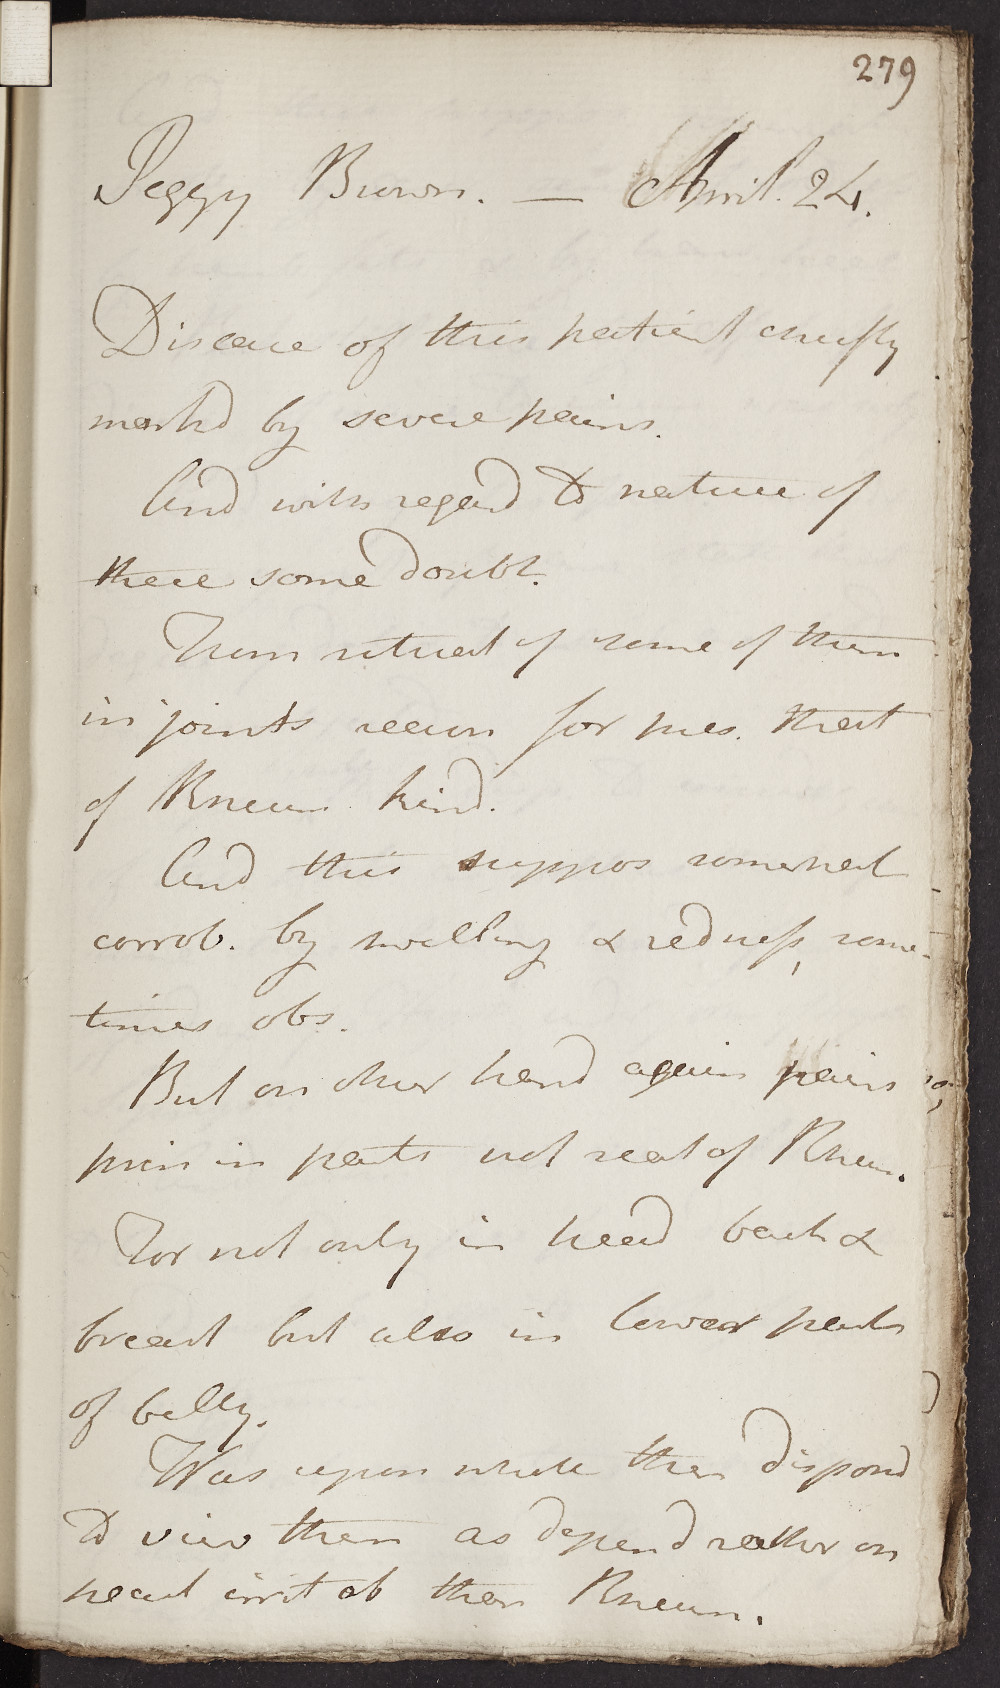 279
Peggy Brown. — April. 24.
Disease of this patient chiefly
mark'd by severe pains.
And with regard to nature of
these some doubt.
From situat of some of them
in joints reason for pres. that
of Rheum kind.
And this suppos somewhat
corrob. by swelling & redness, some-
times obs.
But on other hand again pains
prin in parts not seat of Rheum.
For not only in head back &
breast but also in lower parts
of belly.
Was upon whole then dispond
to view them as depend rather on
irritab then Rheum.